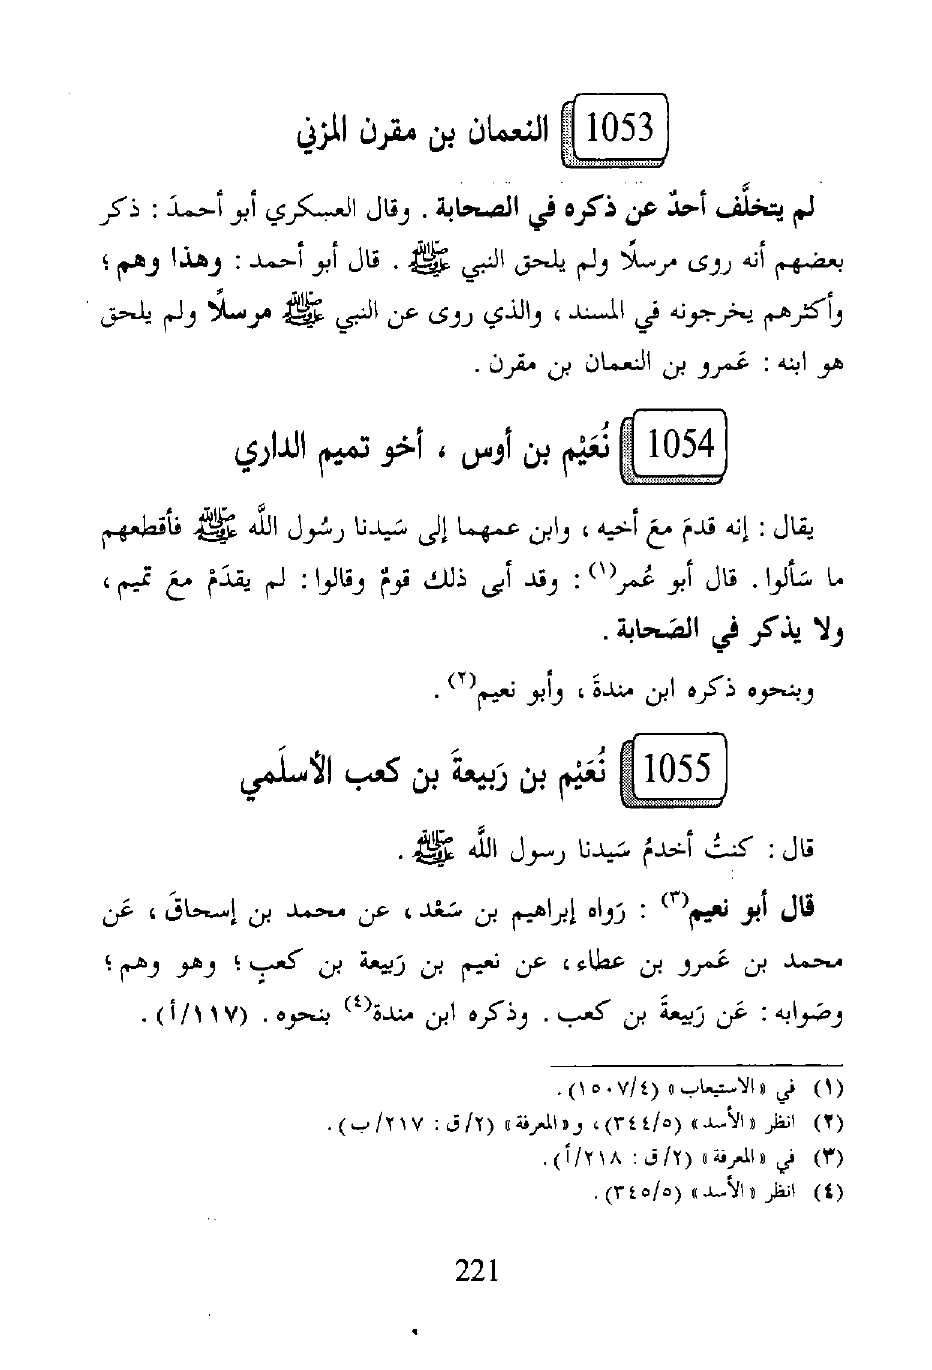 1053 النعمان بن مقرن المزني
لم يتخلَّف أحدٌ عن ذكره في الصحابة . وقال العسكري أبو أحمدَ : ذكر
بعضهم أنه روى مرسلًا ولم يلحق النبي ﷺ . قال أبو أحمد : وهذا وهم ؛
وأكثرهم يخرجونه في المسند ، والذي روى عن النبي ﷺ مرسلًا ولم يلحق
هو ابنه : عَمرو بن النعمان بن مقرن .
1054 نُعَيْم بن أوس ، أخو تميم الداري
يقال : إنه قدمَ معَ أخيه ، وابن عمهما إلى سَيدنا رسُول اللَّه ﷺ فأقطعهم
ما سَألوا . قال أبو عُمر(١) : وقد أبى ذلك قومٌ وقالوا : لم يقدَمْ معَ تميم ،
ولا يذكر في الصَحابة .
وبنحوه ذكره ابن مندةَ ، وأبو نعيم(٢) .
1055 نُعَيْم بن رَبيعةَ بن كعب الأسلَمي
قال : كنتُ أخدمُ سَيدنا رسول اللَّه ﷺ .
قال أبو نعيم(٣) : رَواه إبراهيم بن سَعْد ، عن محمد بن إسحاقَ ، عَن
محمد بن عَمرو بن عطاء ، عن نعيم بن رَبيعة بن كعبٍ ؛ وهو وهم ؛
وصَوابه : عَن رَبيعةَ بن كعب . وذكره ابن مندة(٤) بنحوه . (١١٧/أ) .
(١) في «الاستيعاب» (١٥٠٧/٤) .
(٢) انظر «الأسد» (٣٤٤/٥) ، و«المعرفة» (٢/ ق : ٢١٧/ب) .
(٣) في «المعرفة» (٢/ ق : ٢١٨/أ) .
(٤) انظر «الأسد» (٣٤٥/٥) .
221